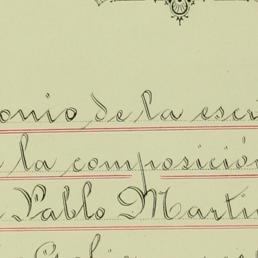 onio de la escri
la composición
Pablo Martín